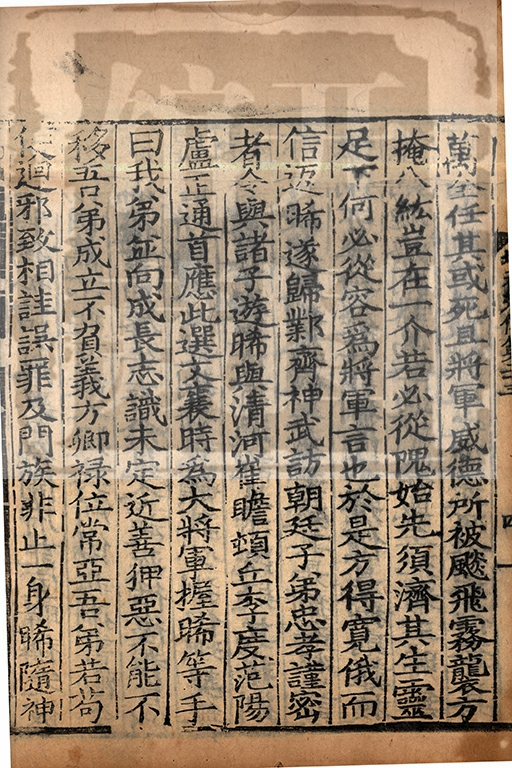 萬全任其或死且將軍威德所被飈飛霧襲方
掩八紘豈在一介若必從隗始先須濟其生靈
足下何必從容爲將軍言也於是方得寬俄而
信返晞遂歸鄴齊神武訪朝廷子弟忠孝謹密
者令與諸子遊晞與清河崔瞻頓丘李度范陽
盧正通首應此選文襄時爲大將軍握晞等手
曰我弟並向成長志識未定近善狎惡不能不
移吾弟成立不負義方卿祿位常亞吾弟若苟
使迴邪致相詿誤罪及門族非止一身晞隨神